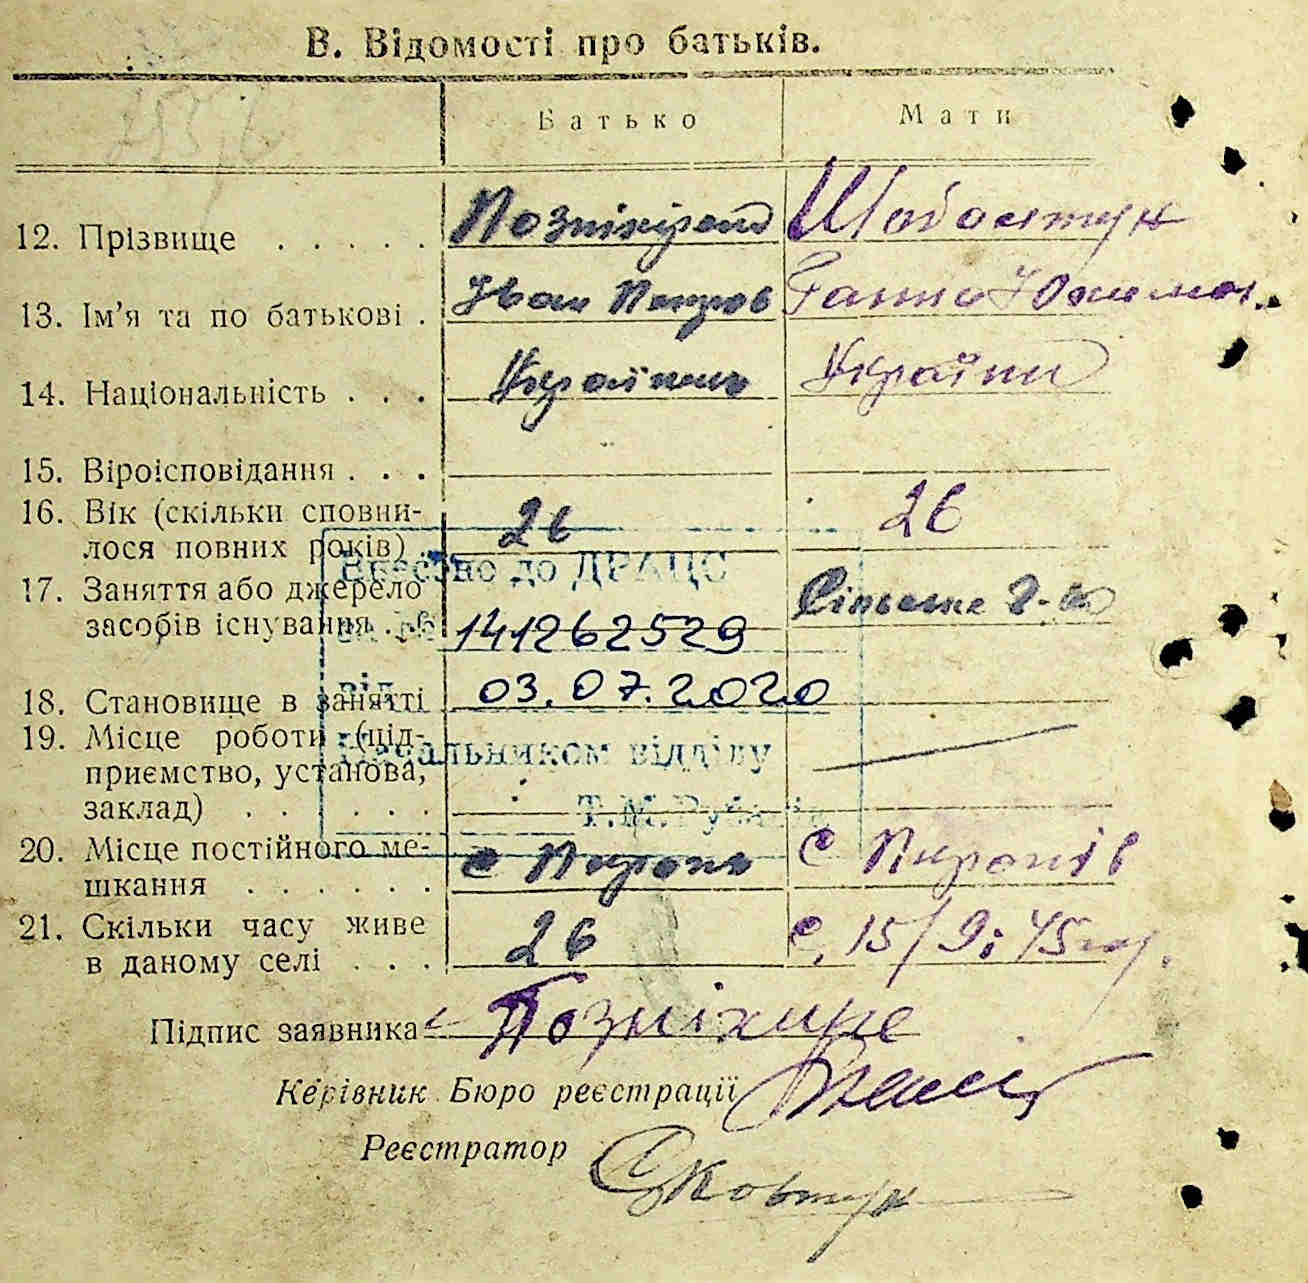 В. Відомості про батьків.
Батько Мати
12. Прізвище . . . . . Шабаштук
13. Ім'я та по батькові . Іван Петров Ганна
14. Національність . . . Українець Українка
15. Віроісповідання . . .
16. Вік (скільки сповни-
лося повних років) . 26 26
Внесено до ДРАЦС
17. Заняття або джерело
засобів існування . . 141262529 Сільське г-во
18. Становище в занятті
від 03.07.2020
19. Місце роботи (під-
приємство, установа,
заклад) . . . . . .
Начальником відділу
Т.М.
20. Місце постійного ме-
шкання . . . . . . с с
21. Скільки часу живе
в даному селі . . . 26 с. 15/9: 45
Підпис заявника
Керівник Бюро реєстрації
Реєстратор Ковтук